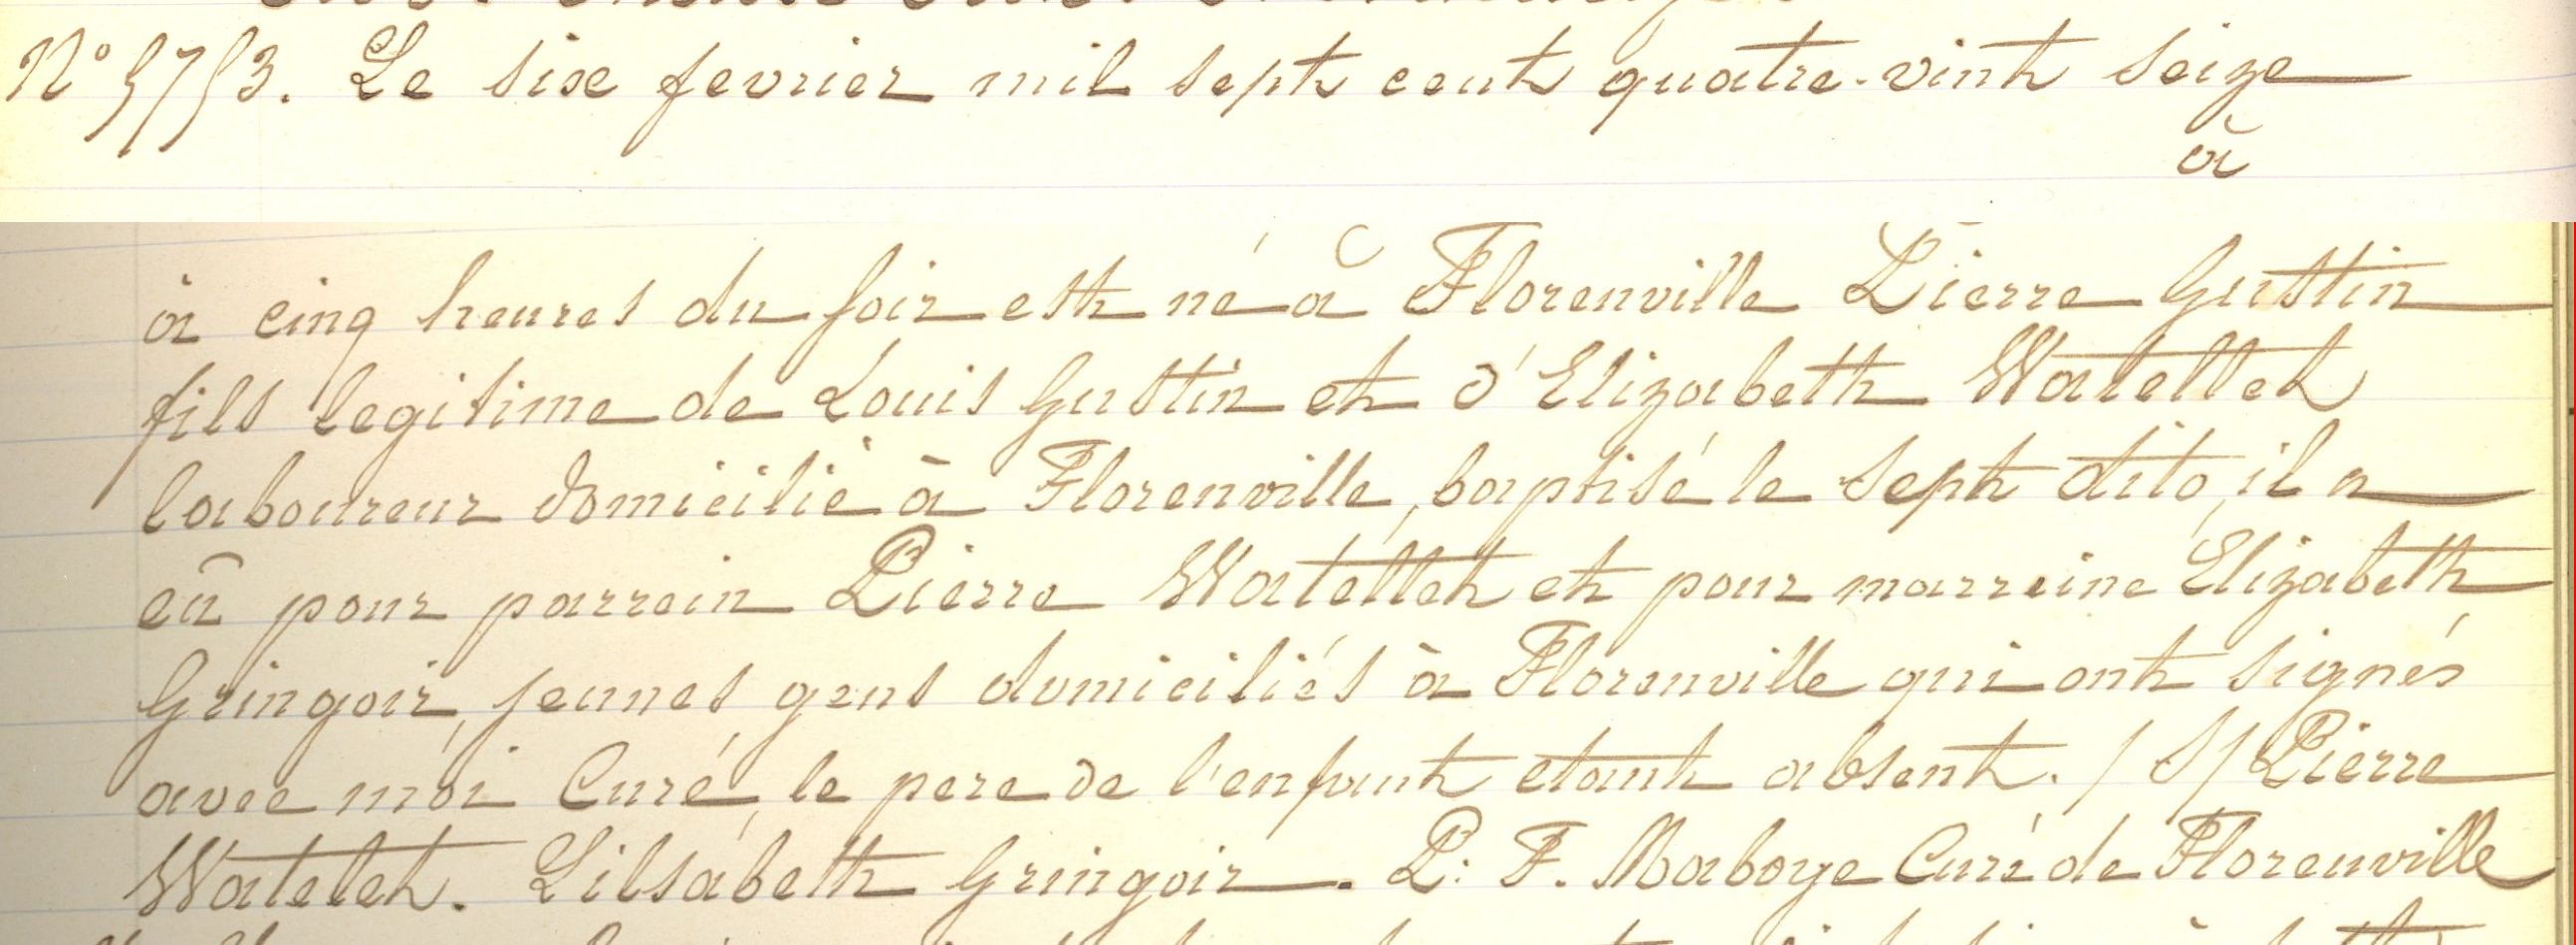 N° 5753. Le six fevrier mil sept cent quatre-vint seize
à
à cinq heures du soir est né à Florenville Pierre Gustin
fils legitime de Louis Gustin et d'Elizabeth Watellet
laboureur domicilié à Florenville, baptisé le sept dito, il a
eû pour parrein Pierre Watellet et pour marreine Elizabeth
Gringoir, jeunes gens domiciliés à Florenville qui ont signés
avec moi Curé, le pere de l'enfant etant absent. /S/ Pierre
Watelet. Lilsabeth Gringoir. P: F. Maboge Curé de Florenville